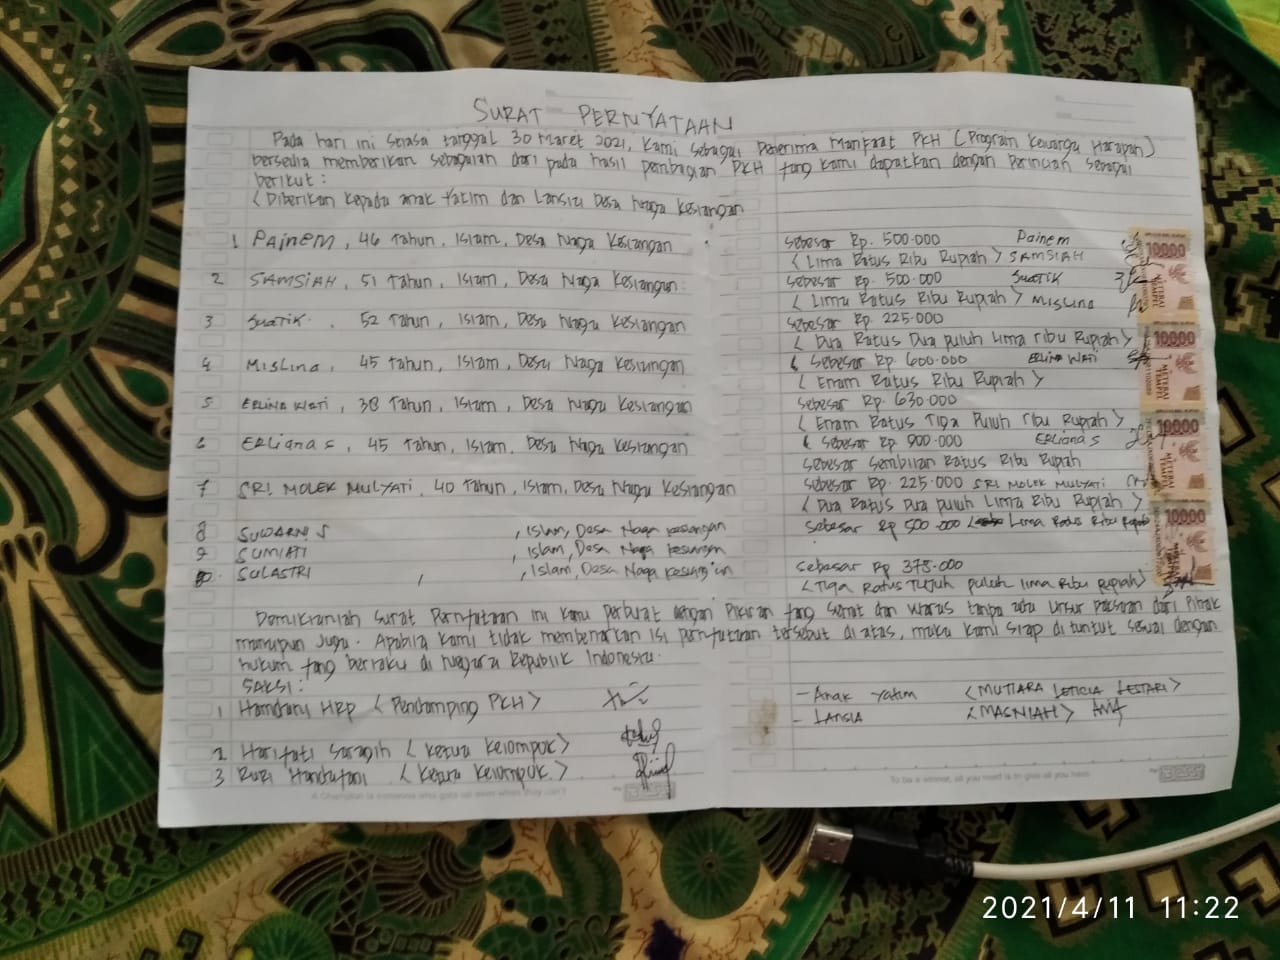 SURAT PERNYATAAN
Pada hari ini Selasa tanggal 30 Maret 2021, Kami sebagai Penerima Manfaat PKH (Program Keluarga Harapan)
bersedia memberikan sebagaian dari pada hasil pembagian PKH yang kami dapatkan dengan perincian sebagai
berikut :
(Diberikan kepada anak Yatim dan Lansia Desa Naga Kesiangan
1 PAINEM, 46 Tahun, Islam, Desa Naga Kesiangan sebesar Rp. 500.000 Painem
(Lima Ratus Ribu Rupiah) SAMSIAH
2 SAMSIAH, 51 Tahun, Islam, Desa Naga Kesiangan sebesar Rp. 500.000 Suatik
(Lima Ratus Ribu Rupiah) Mislina
3 Suatik. 52 Tahun, Islam, Desa Naga Kesiangan sebesar Rp. 225.000
(Dua Ratus Dua puluh Lima ribu Rupiah)
4 Mislina, 45 Tahun, Islam, Desa Naga Kesiangan ( Sebesar Rp. 600.000 ERLINA WATI
(Enam Ratus Ribu Rupiah)
5 ERLINA Wati, 38 Tahun, Islam, Desa Naga Kesiangan sebesar Rp. 630.000
(Enam Ratus Tiga Puluh ribu Rupiah)
6 ERLIANA S, 45 Tahun, Islam, Desa Naga Kesiangan ( Sebesar Rp. 900.000 ERLIANA S
Sebesar Sembilan Ratus Ribu Rupiah
7 SRI MOLEK MULYATI, 40 Tahun, Islam, Desa Naga Kesiangan sebesar Rp. 225.000 SRI MOLEK MULYATI
(Dua Ratus Dua puluh Lima Ribu Rupiah)
8 SUWARNI S , Islam, Desa Naga Kesiangan sebesar Rp 500.000 Lima Ratus Ribu Rupiah
9 SUMIATI , Islam, Desa Naga Kesiangan
10. SULASTRI , , Islam, Desa Naga Kesiangan sebesar Rp 375.000
(Tiga Ratus Tujuh puluh lima Ribu Rupiah)
Demikianlah surat Pernyataan ini kami perbuat dengan Pikiran yang sehat dan waras tanpa ada unsur paksaan dari Pihak
manapun Juga. Apabila kami tidak membenarkan isi pernyataan tersebut di atas, maka kami siap dituntut sesuai dengan
hukum yang berlaku di Negara Republik Indonesia.
SAKSI :
1 Hamdany HRP (Pendamping PKH)
2 Hariyati Saragih (Ketua Kelompok)
3 Rubi Handayani (Ketua Kelompok)
- Anak Yatim (MUTIARA LETICIA LESTARI)
- LANSIA (MASNIAH)
10000
METERAI TEMPEL
10000
METERAI TEMPEL
10000
METERAI TEMPEL
10000
To be a winner, all you need is to give all you have
2021/4/11 11:22